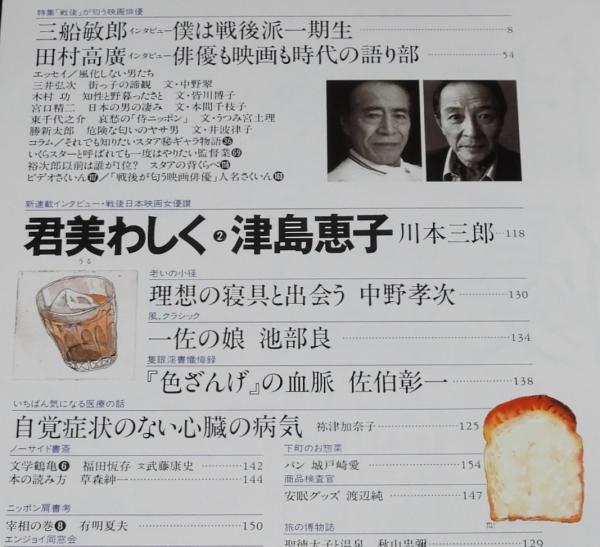 特集「戦後」が匂う映画俳優
三船敏郎 インタビュー 僕は戦後派一期生 8
田村高廣 インタビュー 俳優も映画も時代の語り部 54
エッセイ/風化しない男たち
三井弘次 街っ子の諦観 文・中野翠
木村 功 知性と野暮ったさと 文・皆川博子
宮口精二 日本の男の凄み 文・本間千枝子
東千代之介 哀愁の「侍ニッポン」 文・うつみ宮土理
勝新太郎 危険な匂いのヤサ男 文・井波律子
コラム/それでも知りたいスタア㊙ギャラ物語36
いくらスターと呼ばれても一度はやりたい監督業69
裕次郎以前は誰が1位? スタアの背くらべ
ビデオさくいん/「戦後が匂う映画俳優」人名さくいん
新連載インタビュー・戦後日本映画女優讃
君美わしく❷・津島恵子 川本三郎 118
うる
老いの小径
理想の寝具と出会う 中野孝次 130
風、クラシック
一佐の娘 池部良 134
隻眼淫書懺悔録
『色ざんげ』の血脈 佐伯彰一 138
いちばん気になる医療の話
自覚症状のない心臓の病気 祢津加奈子 125
ノーサイド書斎
文学鶴亀❻ 福田恆存 文武藤康史 142
本の読み方 草森紳一 144
ニッポン肩書考
宰相の巻❽ 有明夏夫 150
エンジョイ同窓会
下町のお惣菜
パン 城戸崎愛 154
商品検査官
安眠グッズ 渡辺純 147
旅の博物誌
聖徳太子と温泉 秋山忠彌 129